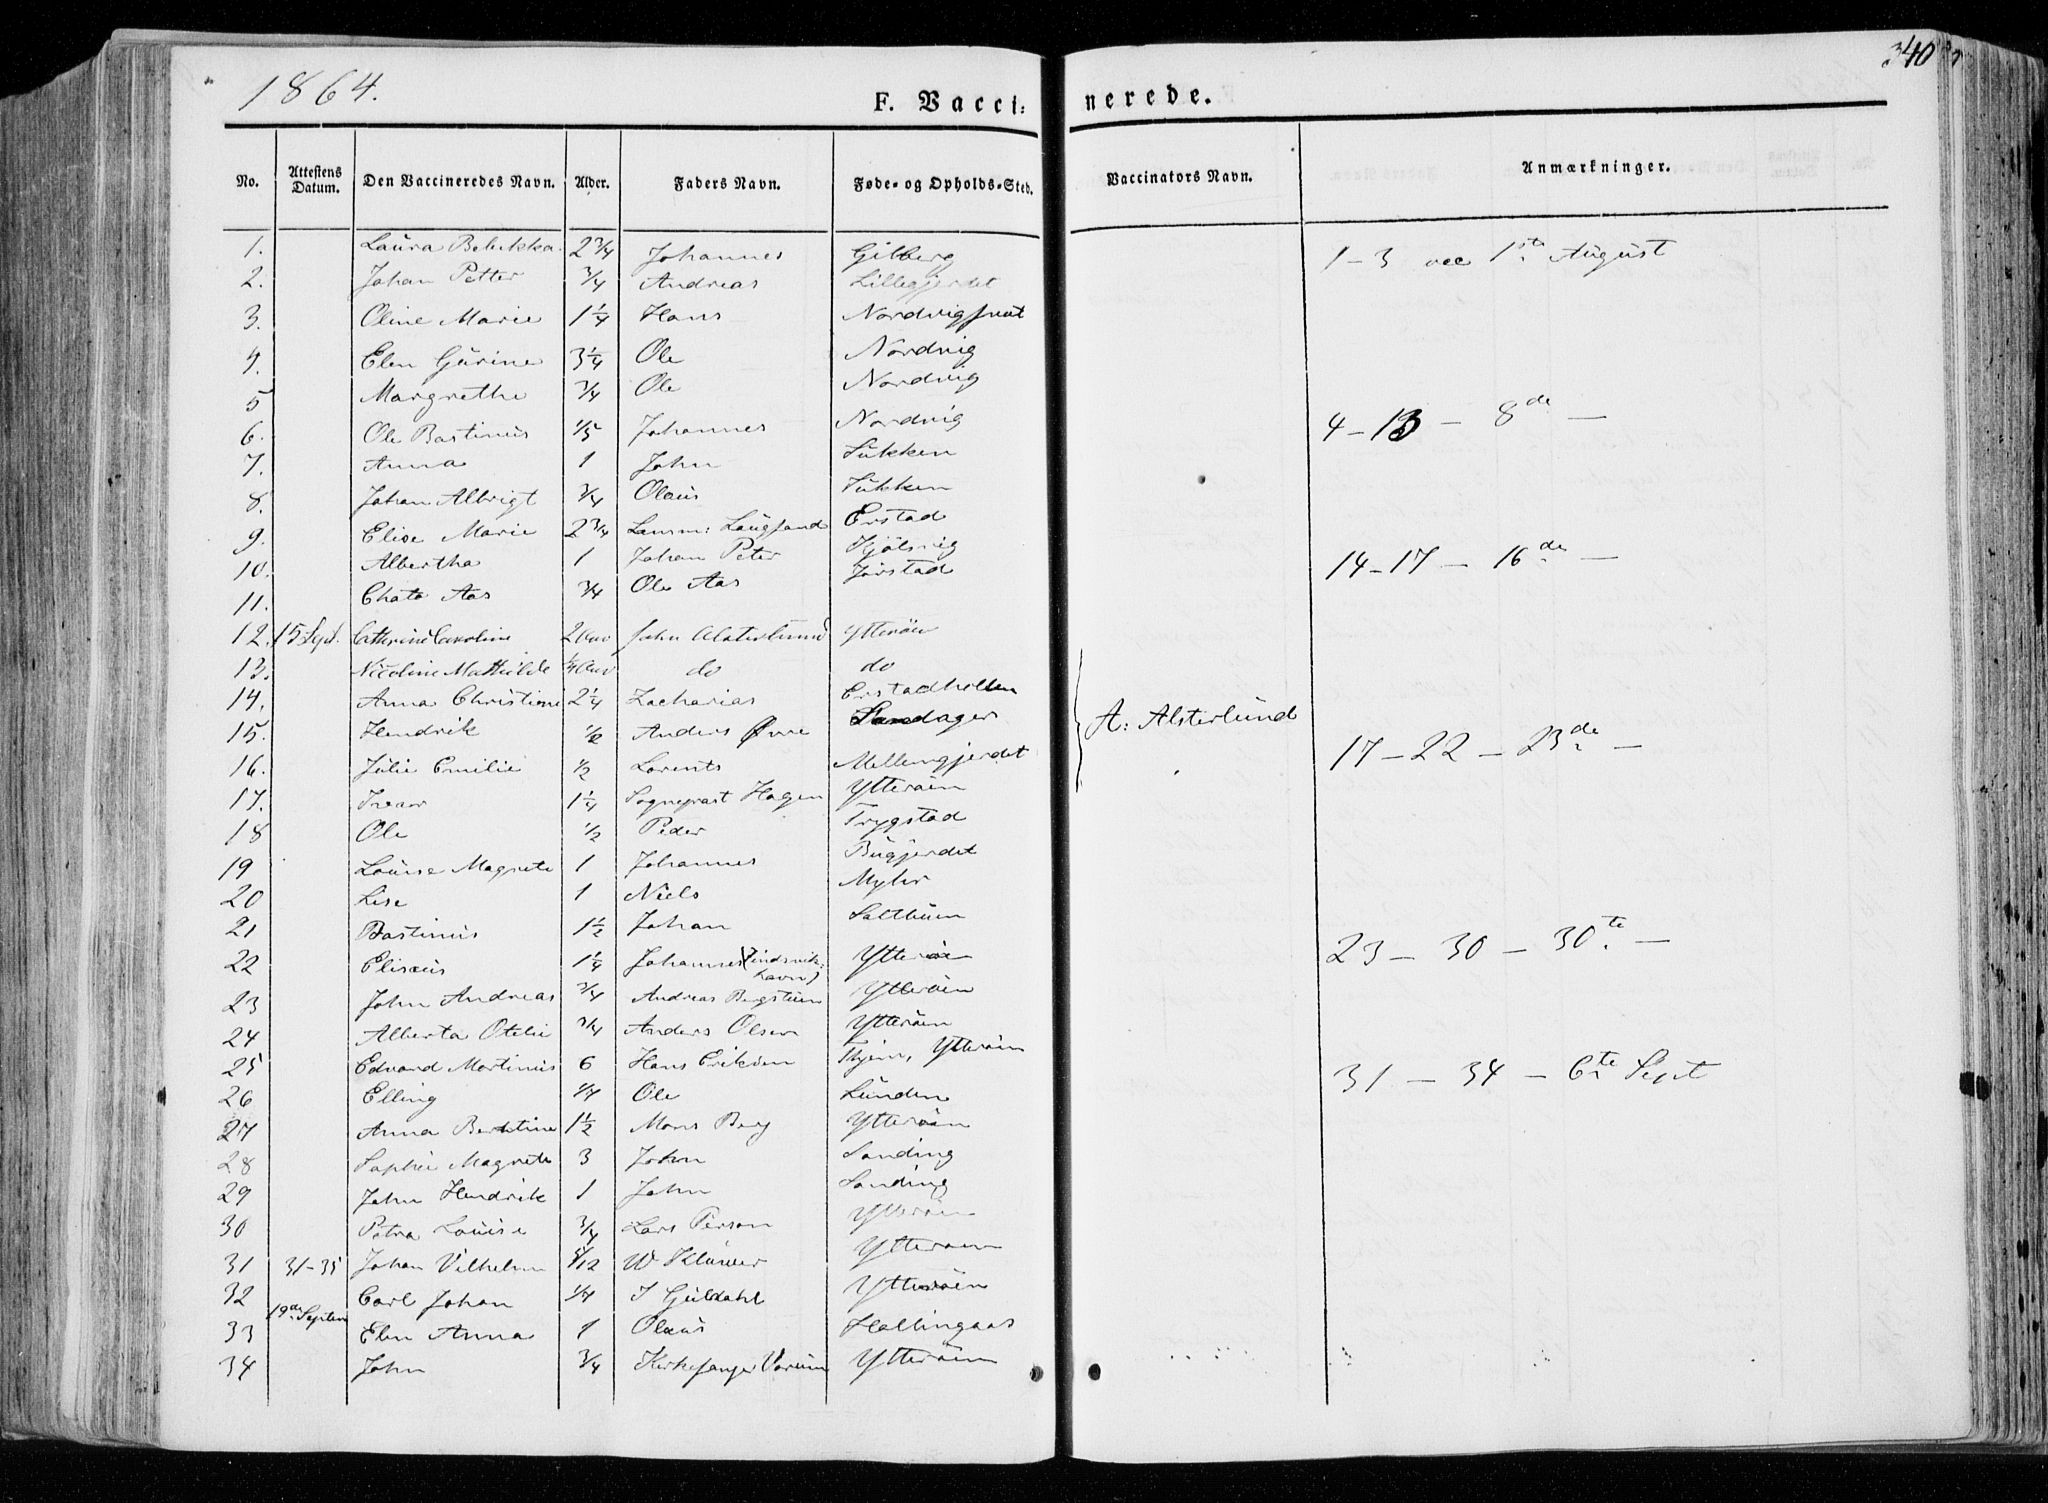 1864.
F. Vacci: nerede.
340
No. Attestens Datum. Den Vaccineredes Navn. Alder. Faders Navn. Føde- og Opholds-Sted. Vaccinators Navn. Anmærkninger.
1. Laura Bebekka 2 3/4 Johannes Gilberg 1-3 vac 1ste August
2. Johan Petter 3/4 Andreas Lillegjerdet
3. Oline Marie 1 1/4 Hans
4. Elen Gurine 3 1/4 Ole Nordvig
5 Margrethe 3/4 Ole Nordvig
6. Ole Bastinus 1/5 Johannes Nordvig 4-13 - 8de -
7. Anna 1 John Sukken
8. Johan Albrigt 3/4 Olaus Sukken
9. Elise Marie 2 3/4 Lensm: Laugsand Erstad
10. Albertha 1 Johan Peter Kjölsvig 14-17 - 16de -
11. Chato Aas 3/4 Ole Aas Jörstad
12. 15 Sept. Cathrine Caroline 2 Aar John Alsterlund Ytteröen
13. Nicoline Mathilde 1/4 Aar do do
14. Anna Christine 2 1/4 Zacharias Erstadhellen
15. Hendrik 1/2 Anders Øvre Sandager A: Alsterlund
16. Julie Emilie 1/2 Lorents Mellemgjerdet 17-22 - 23de -
17. Ivar 1 1/4 Sogneprast Hagen Ytteröen
18 Ole 1/2 Peder Trygstad
19 Louise Magrete 1 Johannes Bugjerdet
20 Lise 1 Niels Myhr
21 Bastinus 1 1/2 Johan Salthuen
22 Elisæus 1 1/4 Johannes Ytteröen 23 - 30 - 30te -
23 John Andreas 3/4 Andreas Bergstuen Ytteröen
24 Alberta Otelie 3/4 Anders Olsen Ytteröen
25 Edvard Martinus 6 Hans Eriksen Thjem, Ytteröen
26 Elling 1/4 Ole Lunden 31 - 34 - 6te Sept
27 Anna Berntine 1 1/2 Mons Berg Ytteröen
28 Sophie Magrete 3 John Sanding
29 John Hendrik 1 John Sanding
30 Petra Louise 3/4 Lars Person Ytteröen
31 31-35 Johan Vilhelm 5/12 W Klüwer Ytteröen
32 19de Septem Carl Johan 1/4 J Guldahl Ytteröen
33 Elen Anna 1 Olaus Hallingaas
34 John 3/4 Kirkesanger Varum Ytteröen